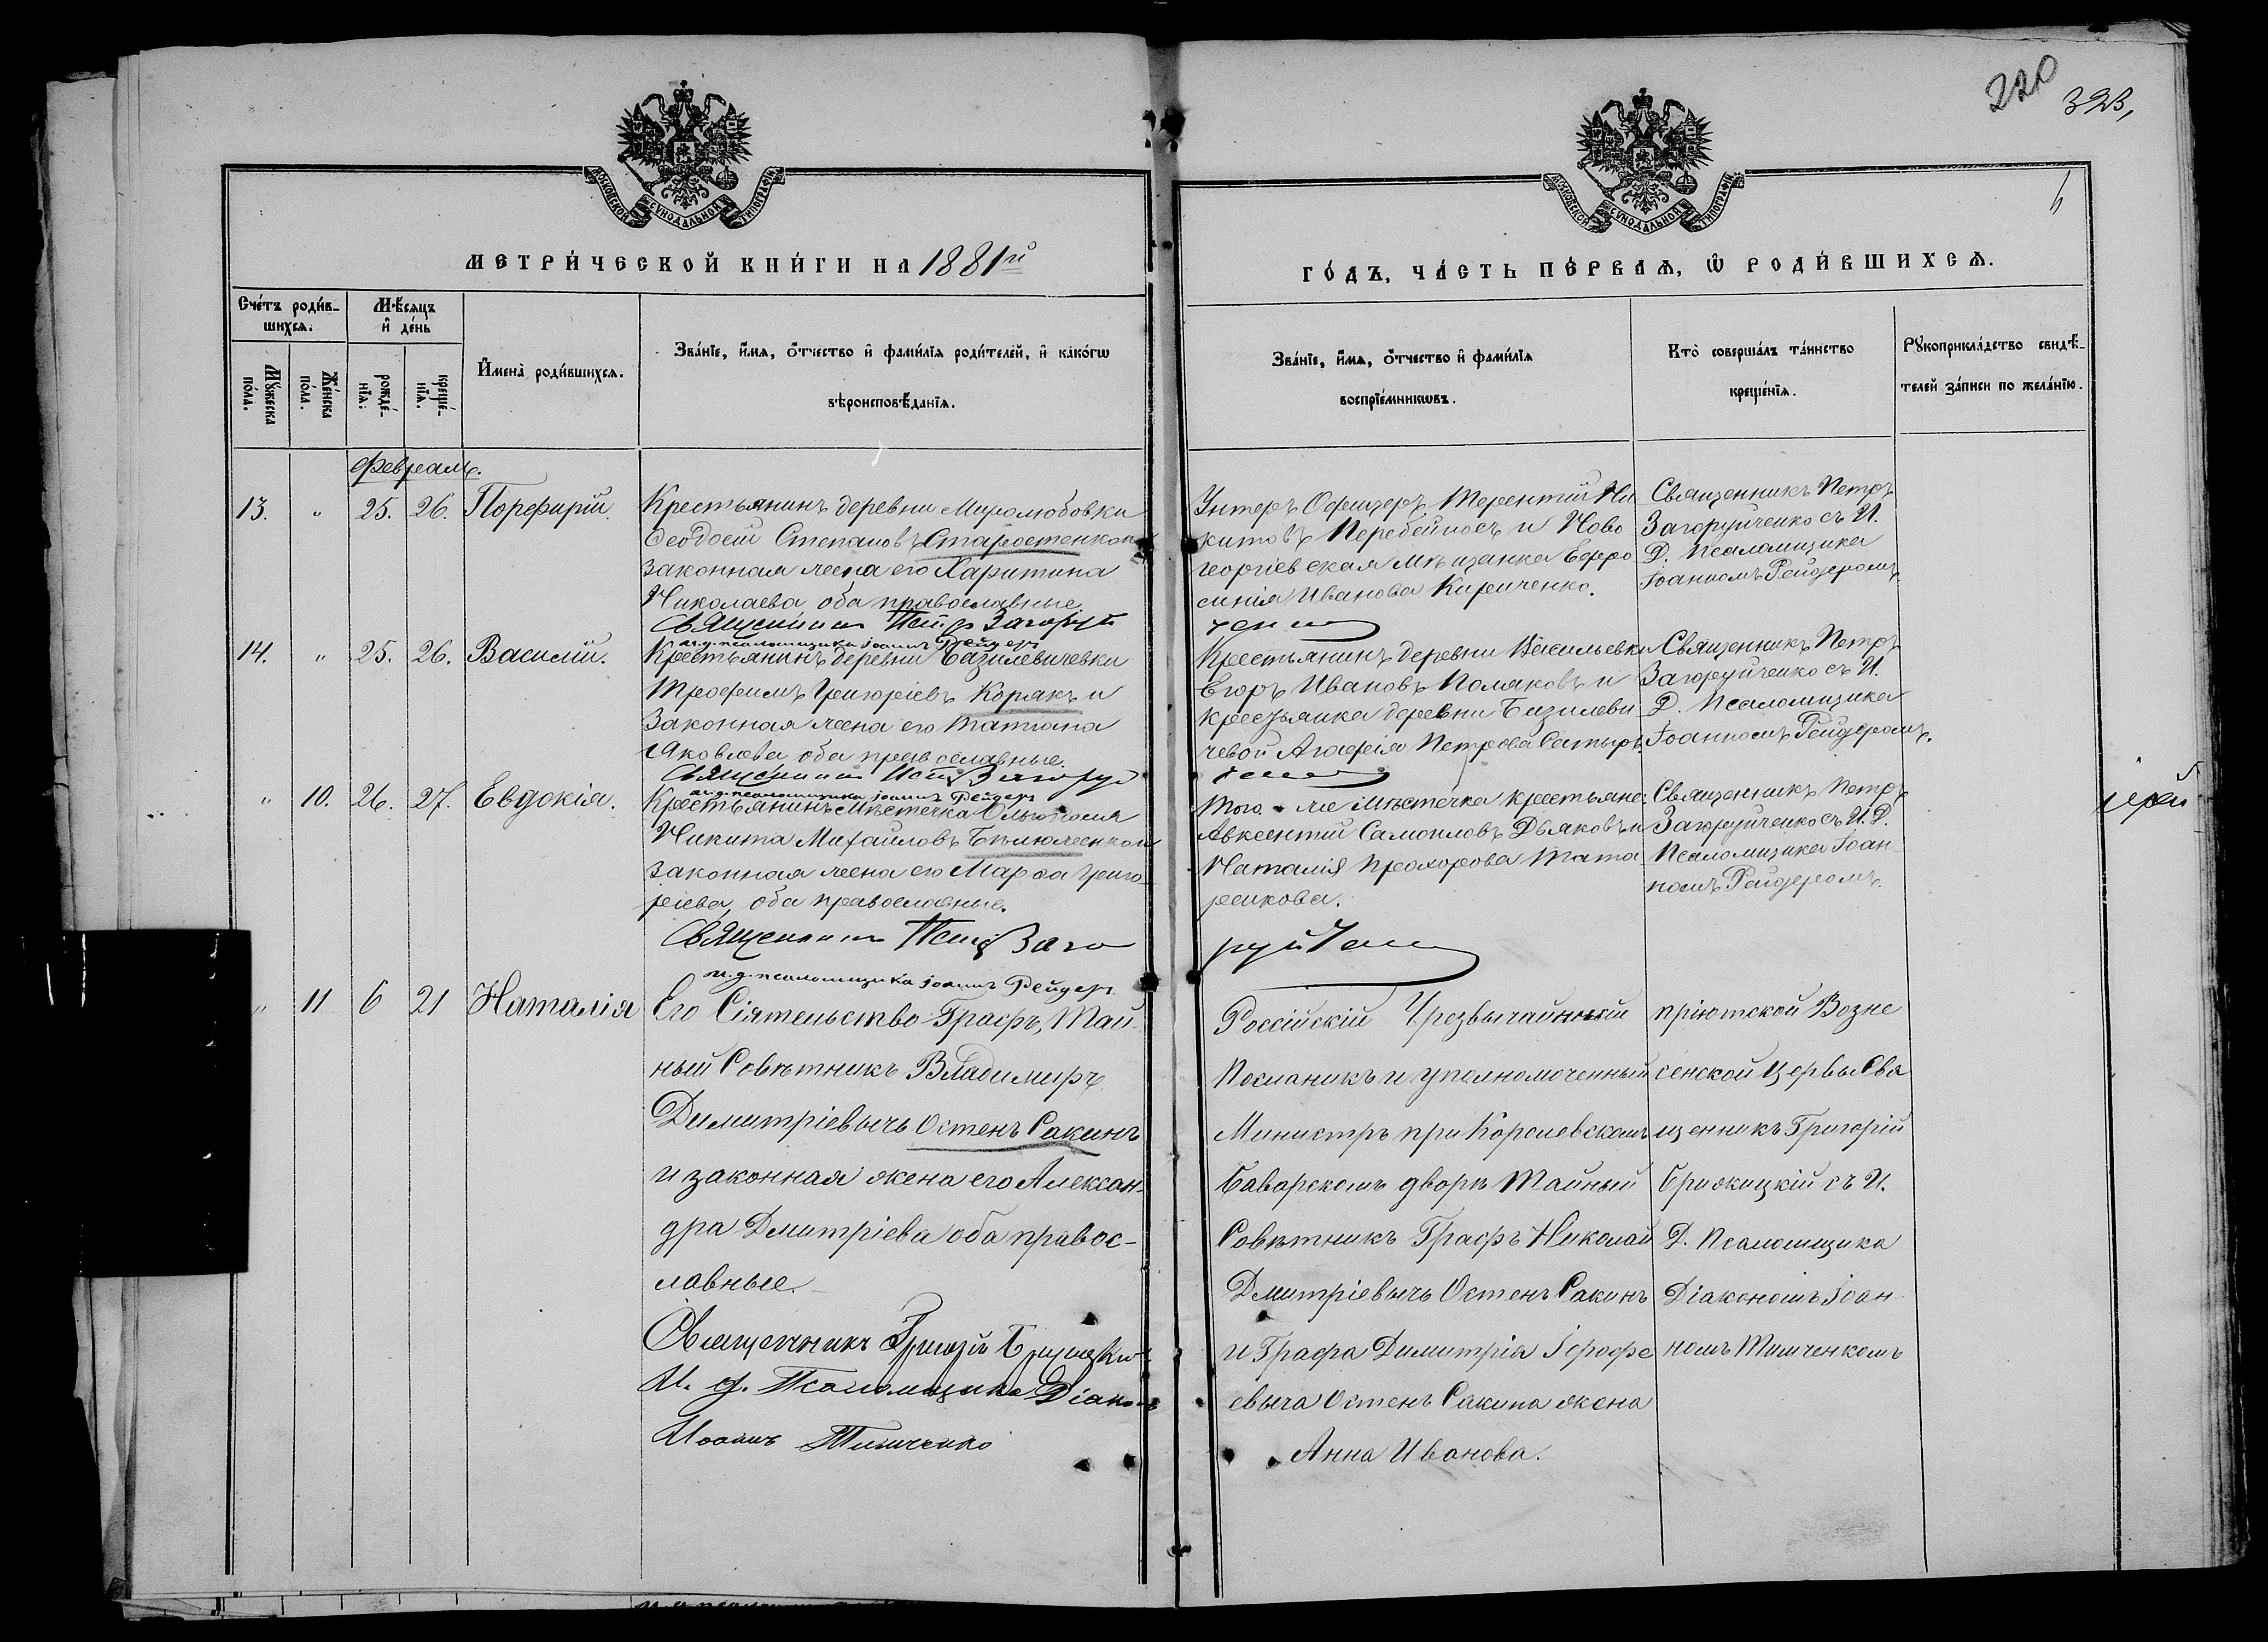 220
323,
МОСКОВСКОЙ СУНОДАЛЬНОЙ ТИПОГРАФІИ
МОСКОВСКОЙ СУНОДАЛЬНОЙ ТИПОГРАФІИ
МЕТРИ́ЧЕСКОЙ КНИ́ГИ НА 1881й
ГО́ДЪ, ЧА́СТЬ ПЕ́РВАѦ, Ѡ҆ РОДИ́ВШИХСѦ.
Сче́тъ роди́в-
шихсѧ.
Мꙋ́жеска
по́ла.
Же́нска
по́ла.
Мѣ́сѧцъ
и҆ де́нь
рожде́-
нїѧ.
креще́-
нїѧ.
И҆мена̀ роди́вшихсѧ.
Зва́нїе, и҆́мѧ, ѻ҆́тчество и҆ фами́лїѧ роди́телей, и҆ како́гѡ
вѣроисповѣ́данїѧ.
Зва́нїе, и҆́мѧ, ѻ҆́тчество и҆ фами́лїѧ
воспрїе́мникѡвъ.
Кто̀ соверша́лъ та́инство
креще́нїѧ.
Рꙋкоприкла́дство свидѣ́-
телей за́писи по жела́нїю.
февраль.
13. „ 25. 26. Порфирій.
Крестьянинъ деревни Миролюбовки
Ѳеодосій Степановъ Старостенко и
законная жена его Харитина
Николаева оба православные.
Священникъ Петръ Загоруй
ченко
и.д. псаломщика Іоаннъ Рейдеръ
Унтеръ Офицеръ Терентій Ни
китовъ Перебейносъ и Ново
георгіевская мѣщанка Ефро
синія Иванова Кириченко.
Священникъ Петръ
Загоруйченко съ И.
Д. Псаломщика
Іоанномъ Рейдеромъ.
14. „ 25. 26. Василій.
Крестьянинъ деревни Базилевичевки
Трофимъ Григоріевъ Корякъ и
законная жена его Татіана
Яковлева оба православные.
Священникъ Петръ Загоруй
ченко
и.д. псаломщика Іоаннъ Рейдеръ
Крестьянинъ деревни Васильевки
Егоръ Ивановъ Поляковъ и
крестьянка деревни Базилеви
чевой Агафія Петрова Сатыръ.
Священникъ Петръ
Загоруйченко съ И.
Д. Псаломщика
Іоанномъ Рейдеромъ.
„ 10. 26. 27. Евдокія.
Крестьянинъ Мѣстечка
Никита Михайловъ
законная жена его Марѳа Григо
ріева, оба православные.
Священникъ Петръ Заго
руйченко
и.д. псаломщика Іоаннъ Рейдеръ
Того-же мѣстечка крестьяне:
Авксентій Самоиловъ Дьяковъ и
Наталія Прохорова Тата
ренкова.
Священникъ Петръ
Загоруйченко съ И. Д.
Псаломщика Іоан
номъ Рейдеромъ.
іерей
„ 11 6 21 Наталія
Его Сіятельство Графъ, Тай
ный Совѣтникъ Владимиръ
Димитріевичь Остенъ Сакинъ
и законная жена его Алексан-
дра Дмитріева оба правос-
лавные.
Священникъ Григорій Брижицкій
И. д. Псаломщика Діаконъ
Иоаннъ Тимченко
Россійскій Чрезвычайнный
Посланикъ и уполномоченный
Министръ при Королевскомъ
Баварскомъ дворѣ Тайный
Совѣтникъ Графъ Николай
Дмитріевичь Остенъ Сакинъ
и Графа Димитрія Ѥрофе
евича Остенъ Сакина жена
Анна Иванова.
пріютской Возне
сенской церьвы Свя
щенникъ Григорій
Брижицкій съ И.
Д. Псаломщика
Діакономъ Іоан
номъ Тимченкомъ